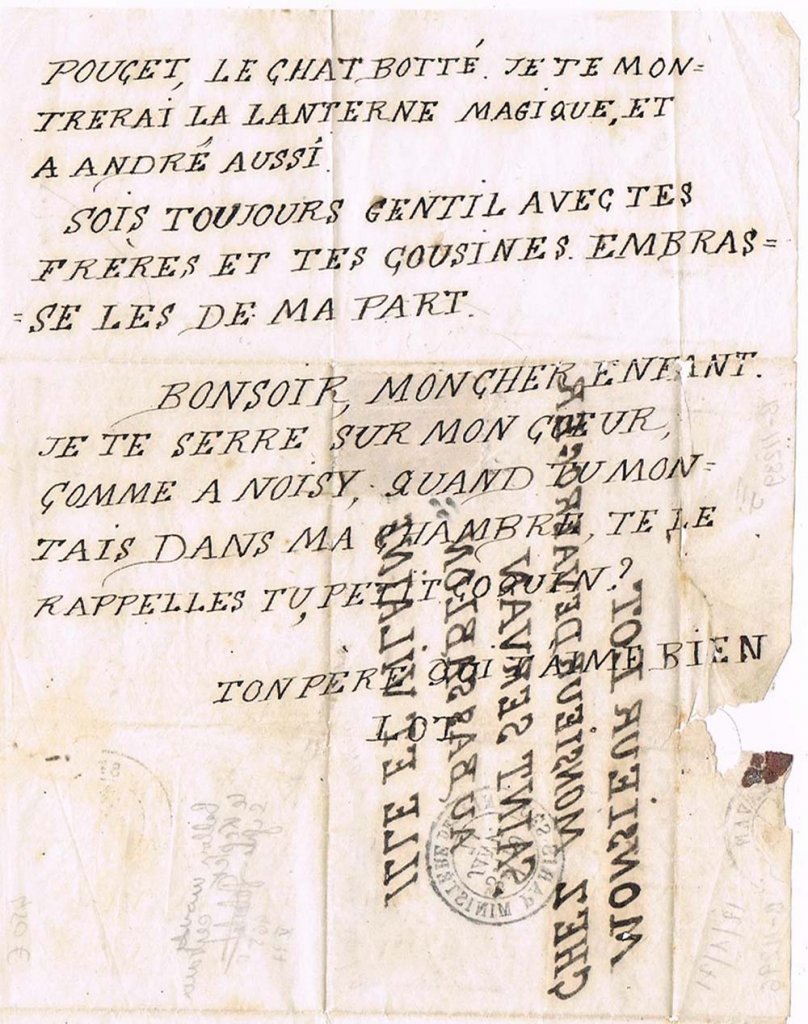 POUCET, LE CHAT BOTTÉ. JE TE MON=
TRERAI LA LANTERNE MAGIQUE, ET
A ANDRÉ AUSSI.
SOIS TOUJOURS GENTIL AVEC TES
FRÈRES ET TES COUSINES. EMBRAS=
=SE LES DE MA PART.
BONSOIR, MON CHER ENFANT.
JE TE SERRE SUR MON CŒUR,
COMME A NOISY, QUAND TU MON=
TAIS DANS MA CHAMBRE, TE LE
RAPPELLES TU, PETIT COQUIN?
TON PÈRE QUI T'AIME BIEN
LOT
MONSIEUR LOT
CHEZ MONSIEUR DEVA
SAINT SERVAN
ILLE ET VILAINE